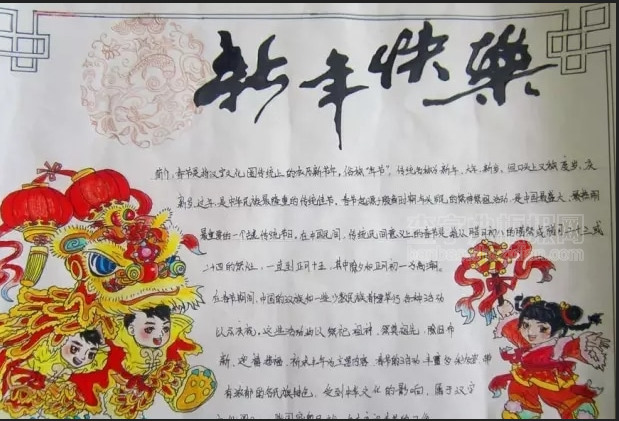 新年快樂
简介:春节是指汉字文化圈传统上的农历新年,俗称"年节",传统名称为新年、大年、新岁,但口头上又称度岁、庆
新岁、过年,是中华民族最隆重的传统佳节。春节起源于殷商时期年头岁尾的祭神祭祖活动,是中国最盛大、最热闹
最重要的一个古老传统节日。在中国民间,传统意义上的春节是指从腊月初八的腊祭或腊月二十三或
二十四的祭灶,一直到正月十五,其中除夕和正月初一为高潮。
在春节期间,中国的汉族和一些少数民族都要举行各种活动
以示庆祝。这些活动均以祭祀祖神、祭奠祖先、除旧布
新、迎禧接福、祈求丰年为主要内容。春节的活动丰富多彩,带
有浓郁的各民族特色。受到中华文化的影响,属于汉字